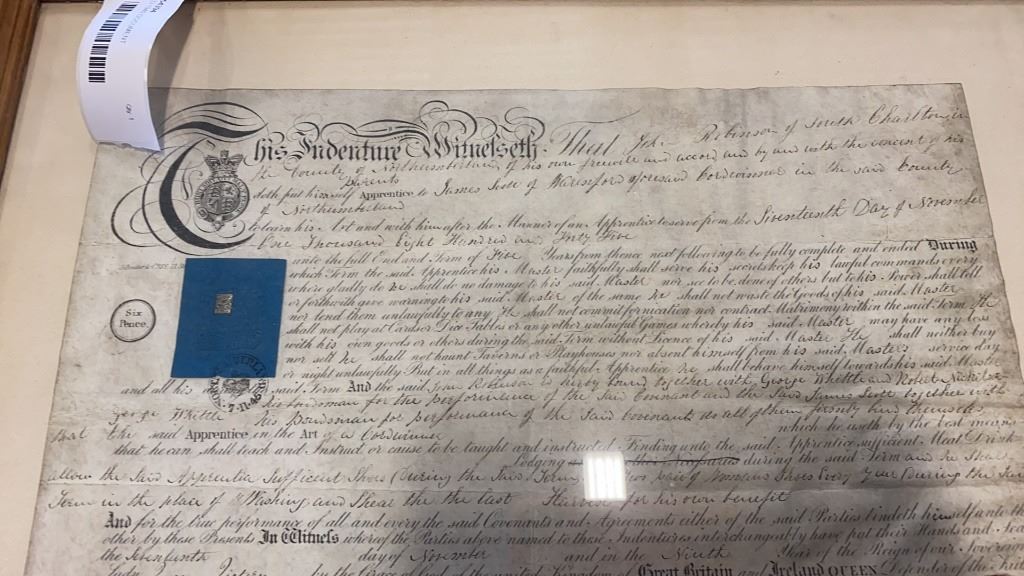 Qty 1
This Indenture Witnesseth That John Robinson of South Charlton in
the County of Northumberland of his own freewill and accord and by and with the consent of his
Parents
doth put himself Apprentice to James of Warenford Cordwainer in the said County
of Northumberland
to learn his Art and with him after the Manner of an Apprentice to serve from the Seventeenth Day of November
One Thousand Eight Hundred and Forty Five
unto the full End and Term of Five Years from thence next following to be fully complete and ended During
which Term the said Apprentice his Master faithfully shall serve his secrets keep his lawful commands every
where gladly do he shall do no damage to his said Master nor see to be done of others but to his Power shall tell
or forthwith give warning to his said Master of the same he shall not waste the Goods of his said Master
nor lend them unlawfully to any He shall not commit fornication nor contract Matrimony within the said Term He
shall not play at Cards or Dice Tables or any other unlawful Games whereby his said Master may have any loss
Six
Pence.
with his own goods or others during the said Term without Licence of his said Master He shall neither buy
nor sell he shall not haunt Taverns or Playhouses nor absent himself from his said Master's service day
or night unlawfully But in all things as a faithful Apprentice he shall behave himself towards his said Master
and all his said Term And the said John Robinson is hereby bound together with George Whittle and Robert
his bondsman for the performance of the said Covenant and the said James together with
George Whittle his Bondsman for performance of the said Covenants do all of them firmly bind themselves
which he useth by the best means
But the said Apprentice in the Art of a Cordwainer
that he can shall teach and Instruct or cause to be taught and instructed Finding unto the said Apprentice sufficient Meat Drink
lodging during the said Term and he shall
allow the said Apprentice sufficient Shoes During the said Term pair of Shoes Every Year During the said
Term in the place of Washing and Shear the the last Harvest for his own benefit
And for the true performance of all and every the said Covenants and Agreements either of the said Parties bindeth himself unto the
other by these Presents In Witness whereof the Parties above named to these Indentures interchangeably have put their Hands and Seals
the Seventeenth day of November and in the Ninth Year of the Reign of our Sovereign
Lady Victoria by the Grace of God of the united Kingdom of Great Britain and Ireland QUEEN Defender of the Faith